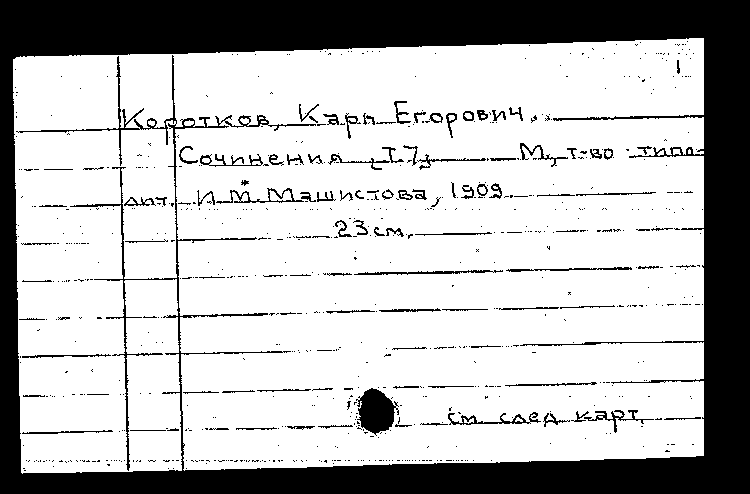 1
Коротков, Карп Егорович.
Сочинения [Т.7] М., т-во типо-
лит. И.М. Машистова, 1909.
23 см.
см. след карт.